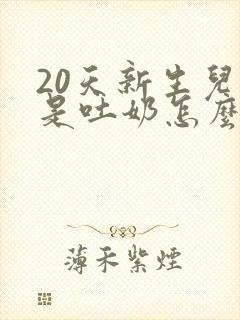 20天新生兒
是吐奶怎麼
薄禾紫煙